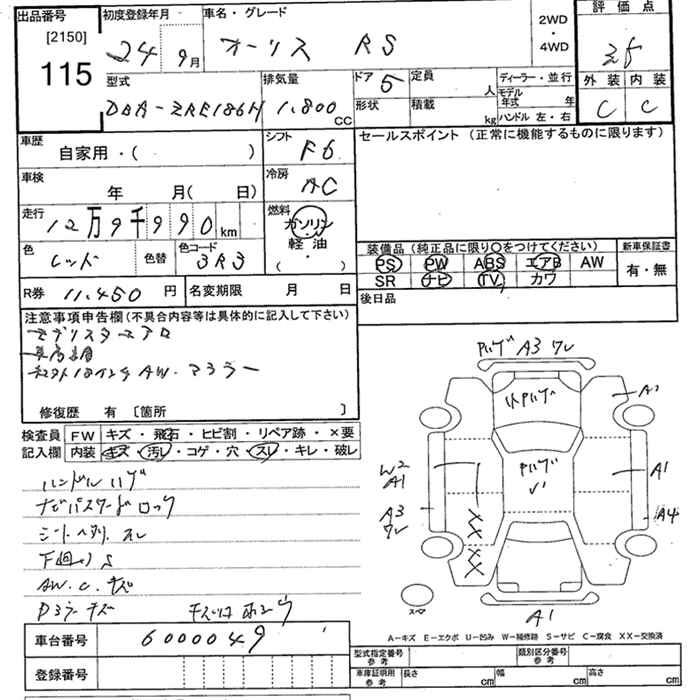 出品番号
[2150]
115
初度登録年月
24年9月
車名・グレード
オーリス RS
2WD
・
4WD
評価点
外装 内装
C C
型式
DBA-ZRE186H
排気量
1,800 CC
ドア 5
定員 人
形状
積載 kg
ディーラー・並行
モデル年式 年
ハンドル 左・右
車歴
自家用・( )
シフト
F6
セールスポイント (正常に機能するものに限ります)
車検
年 月( 日)
冷房
AC
走行
12万9千990km
燃料
ガソリン
・
軽油
( ・ )
色
レッド
色替
色コード
3R3
装備品 (純正品に限り○をつけてください)
新車保証書
PS PW ABS エアB AW
有・無
SR ナビ TV カワ
R券 11,450 円
名変期限 月 日
後日品
注意事項申告欄 (不具合内容等は具体的に記入して下さい)
モデリスタエアロ
車高調
AW. マフラー
修復歴 有 〔箇所 〕
検査員記入欄
FW キズ・飛石・ヒビ割・リペア跡・×要
内装 キズ・汚レ・コゲ・穴・スレ・キレ・破レ
ハンドルハゲ
ナビパスワードロック
シートヘタリ. スレ
下廻りS
AW. C. キズ
Dミラーキズ
ハゲ A3 ワレ
ハゲ
A1
W2
A1
ハゲ
A1
A3
ワレ
A4
XX
XX
A1
A-キズ E-エクボ U-凹み W-補修跡 S-サビ C-腐食 XX-交換済
車台番号 6000049
登録番号
型式指定番号 参考
類別区分番号 参考
車庫証明用 参考
長さ cm
幅 cm
高さ cm